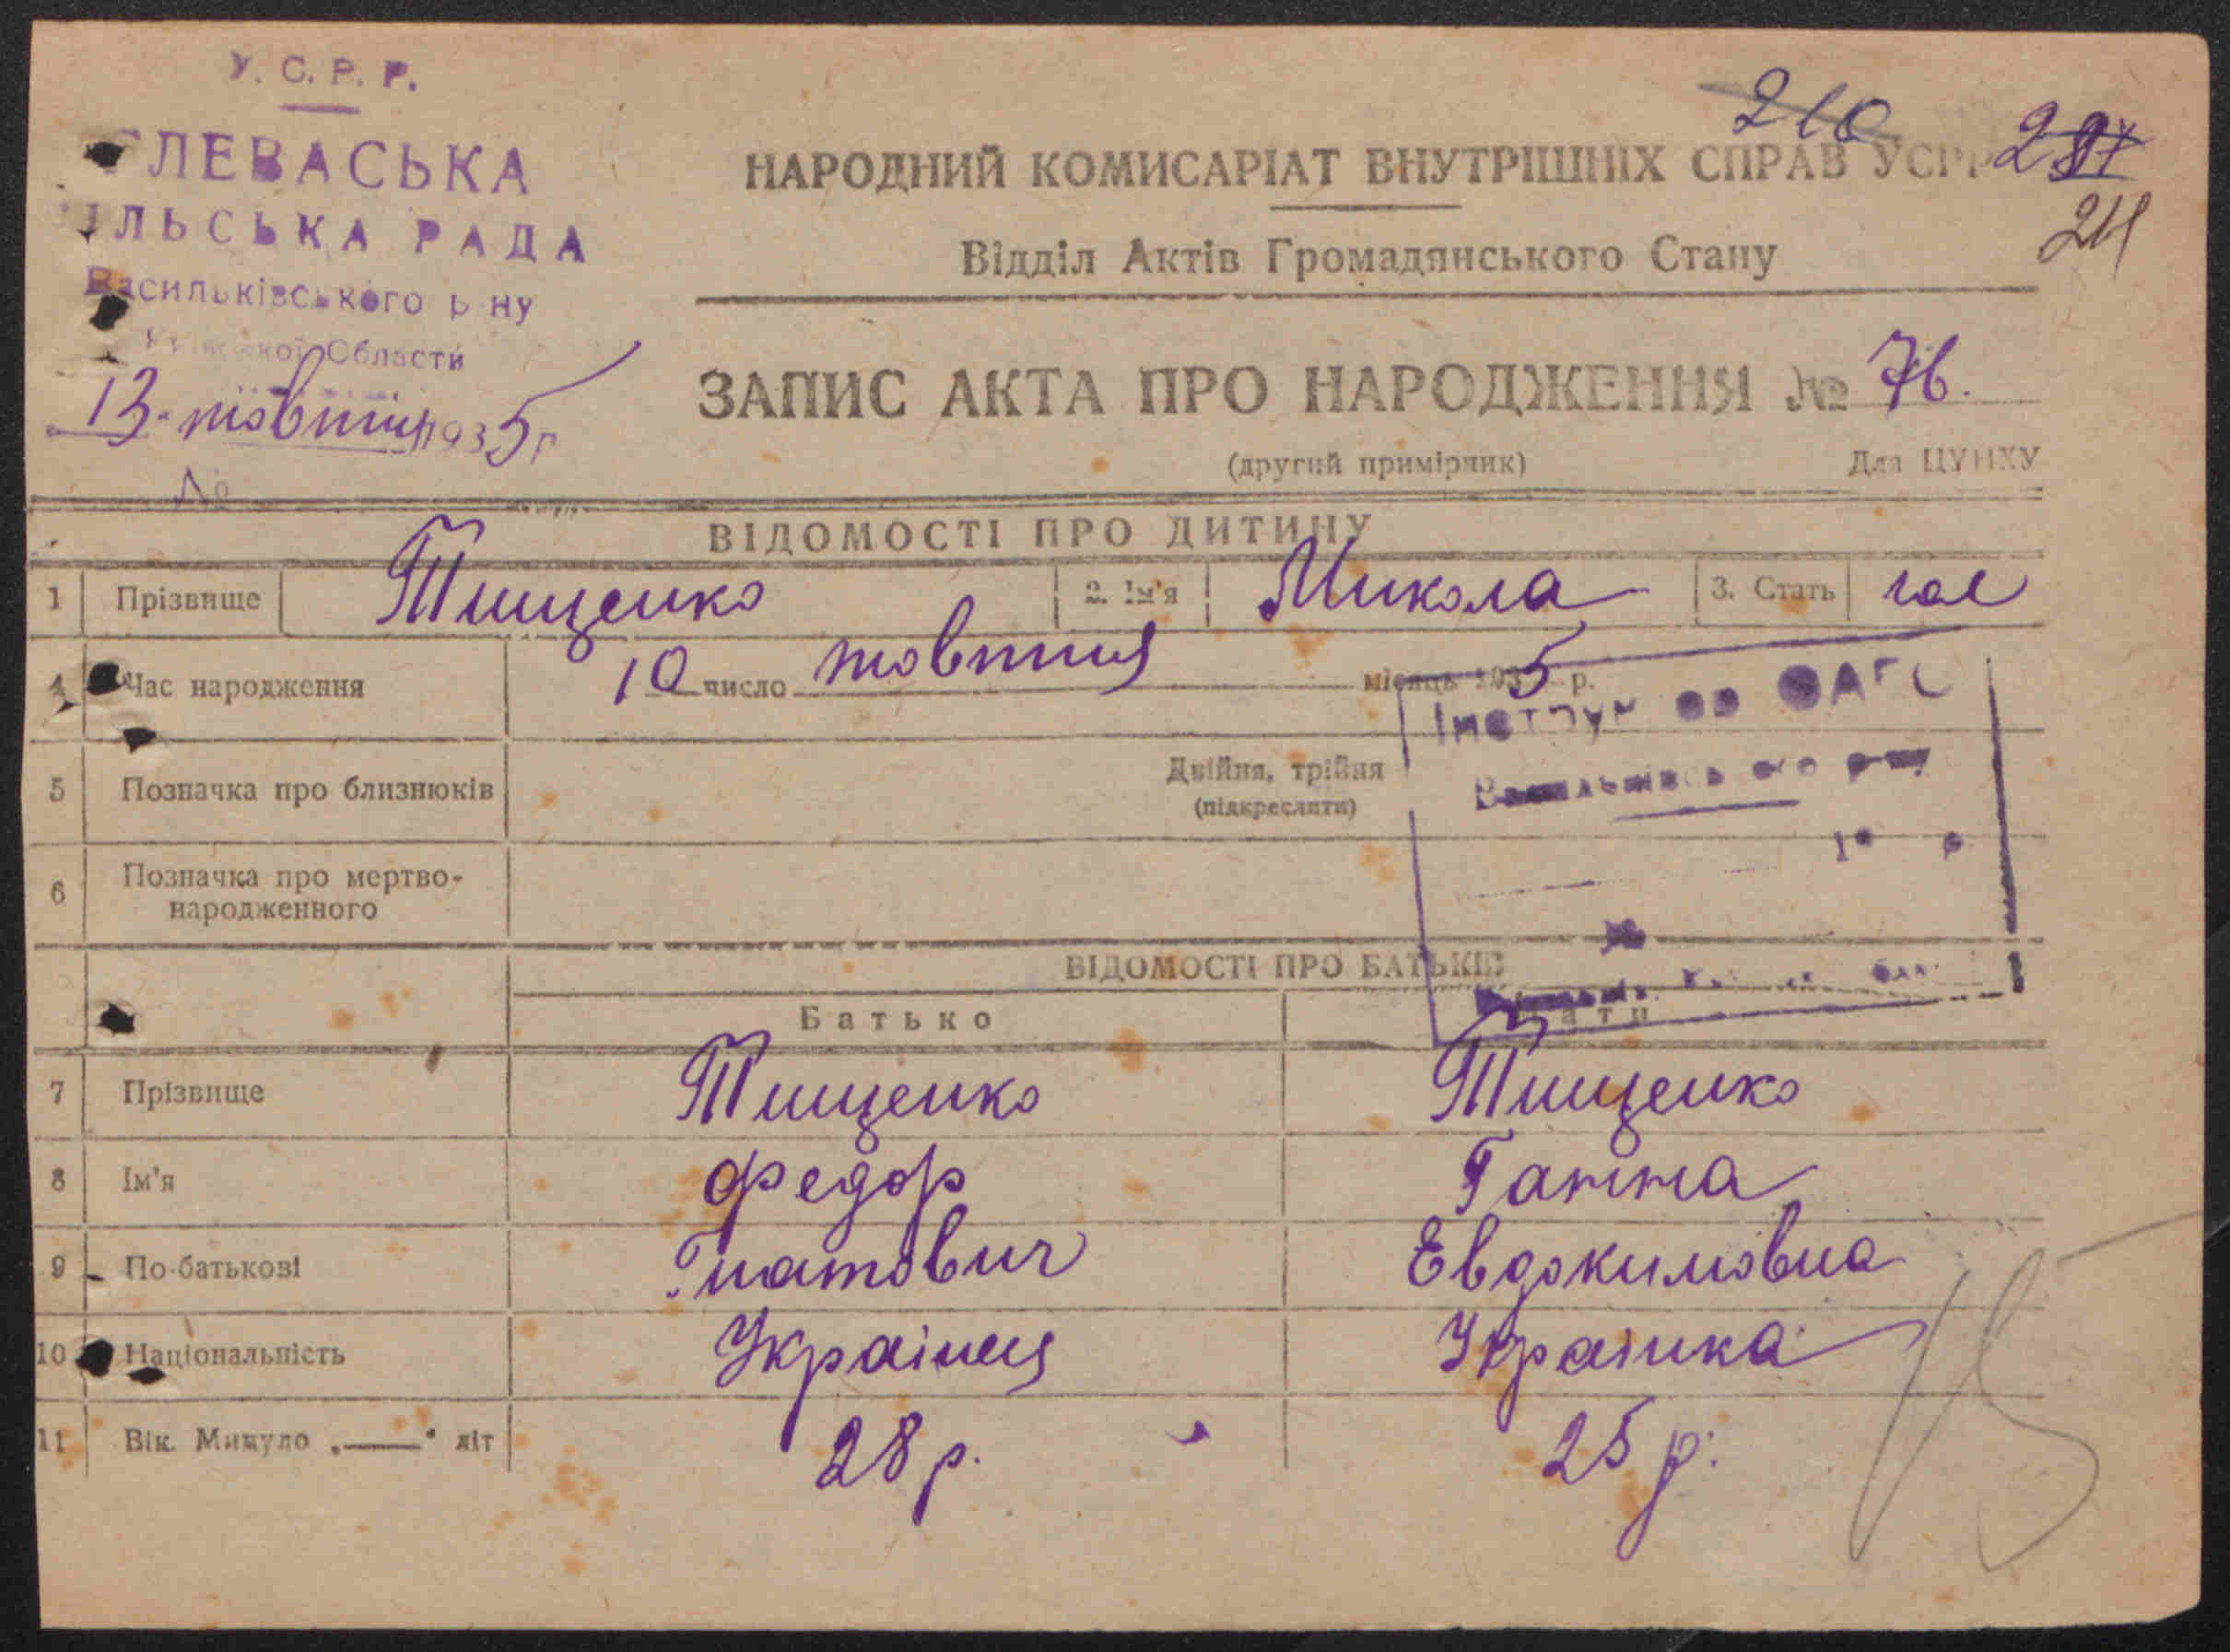 У. С. Р. Р.
ГЛЕВАСЬКА
ІЛЬСЬКА РАДА
Васильківського р ну
Области
13 - жовтня 1935 р
№
210
211
НАРОДНИЙ КОМИСАРІАТ ВНУТРІШНІХ СПРАВ УСРР
Відділ Актів Громадянського Стану
ЗАПИС АКТА ПРО НАРОДЖЕННЯ № 76.
(другий примірник) Для ЦУНХУ
ВІДОМОСТІ ПРО ДИТИНУ
1 Прізвище Тищенко 2. Ім'я Микола 3. Стать чол
4 Час народження 10 число жовтня місяць 1935 р.
5 Позначка про близнюків Двійня, трійня
(підкреслити)
6 Позначка про мертво-
народженного
ВІДОМОСТІ ПРО БАТЬКІВ
Батько Мати
7 Прізвище Тищенко Тищенко
8 Ім'я Федор Ганна
9 По-батькові Гнатович Евдокимовна
10 Національність Українец Українка
11 Вік. Минуло „—“ літ 28 р. 25 р.